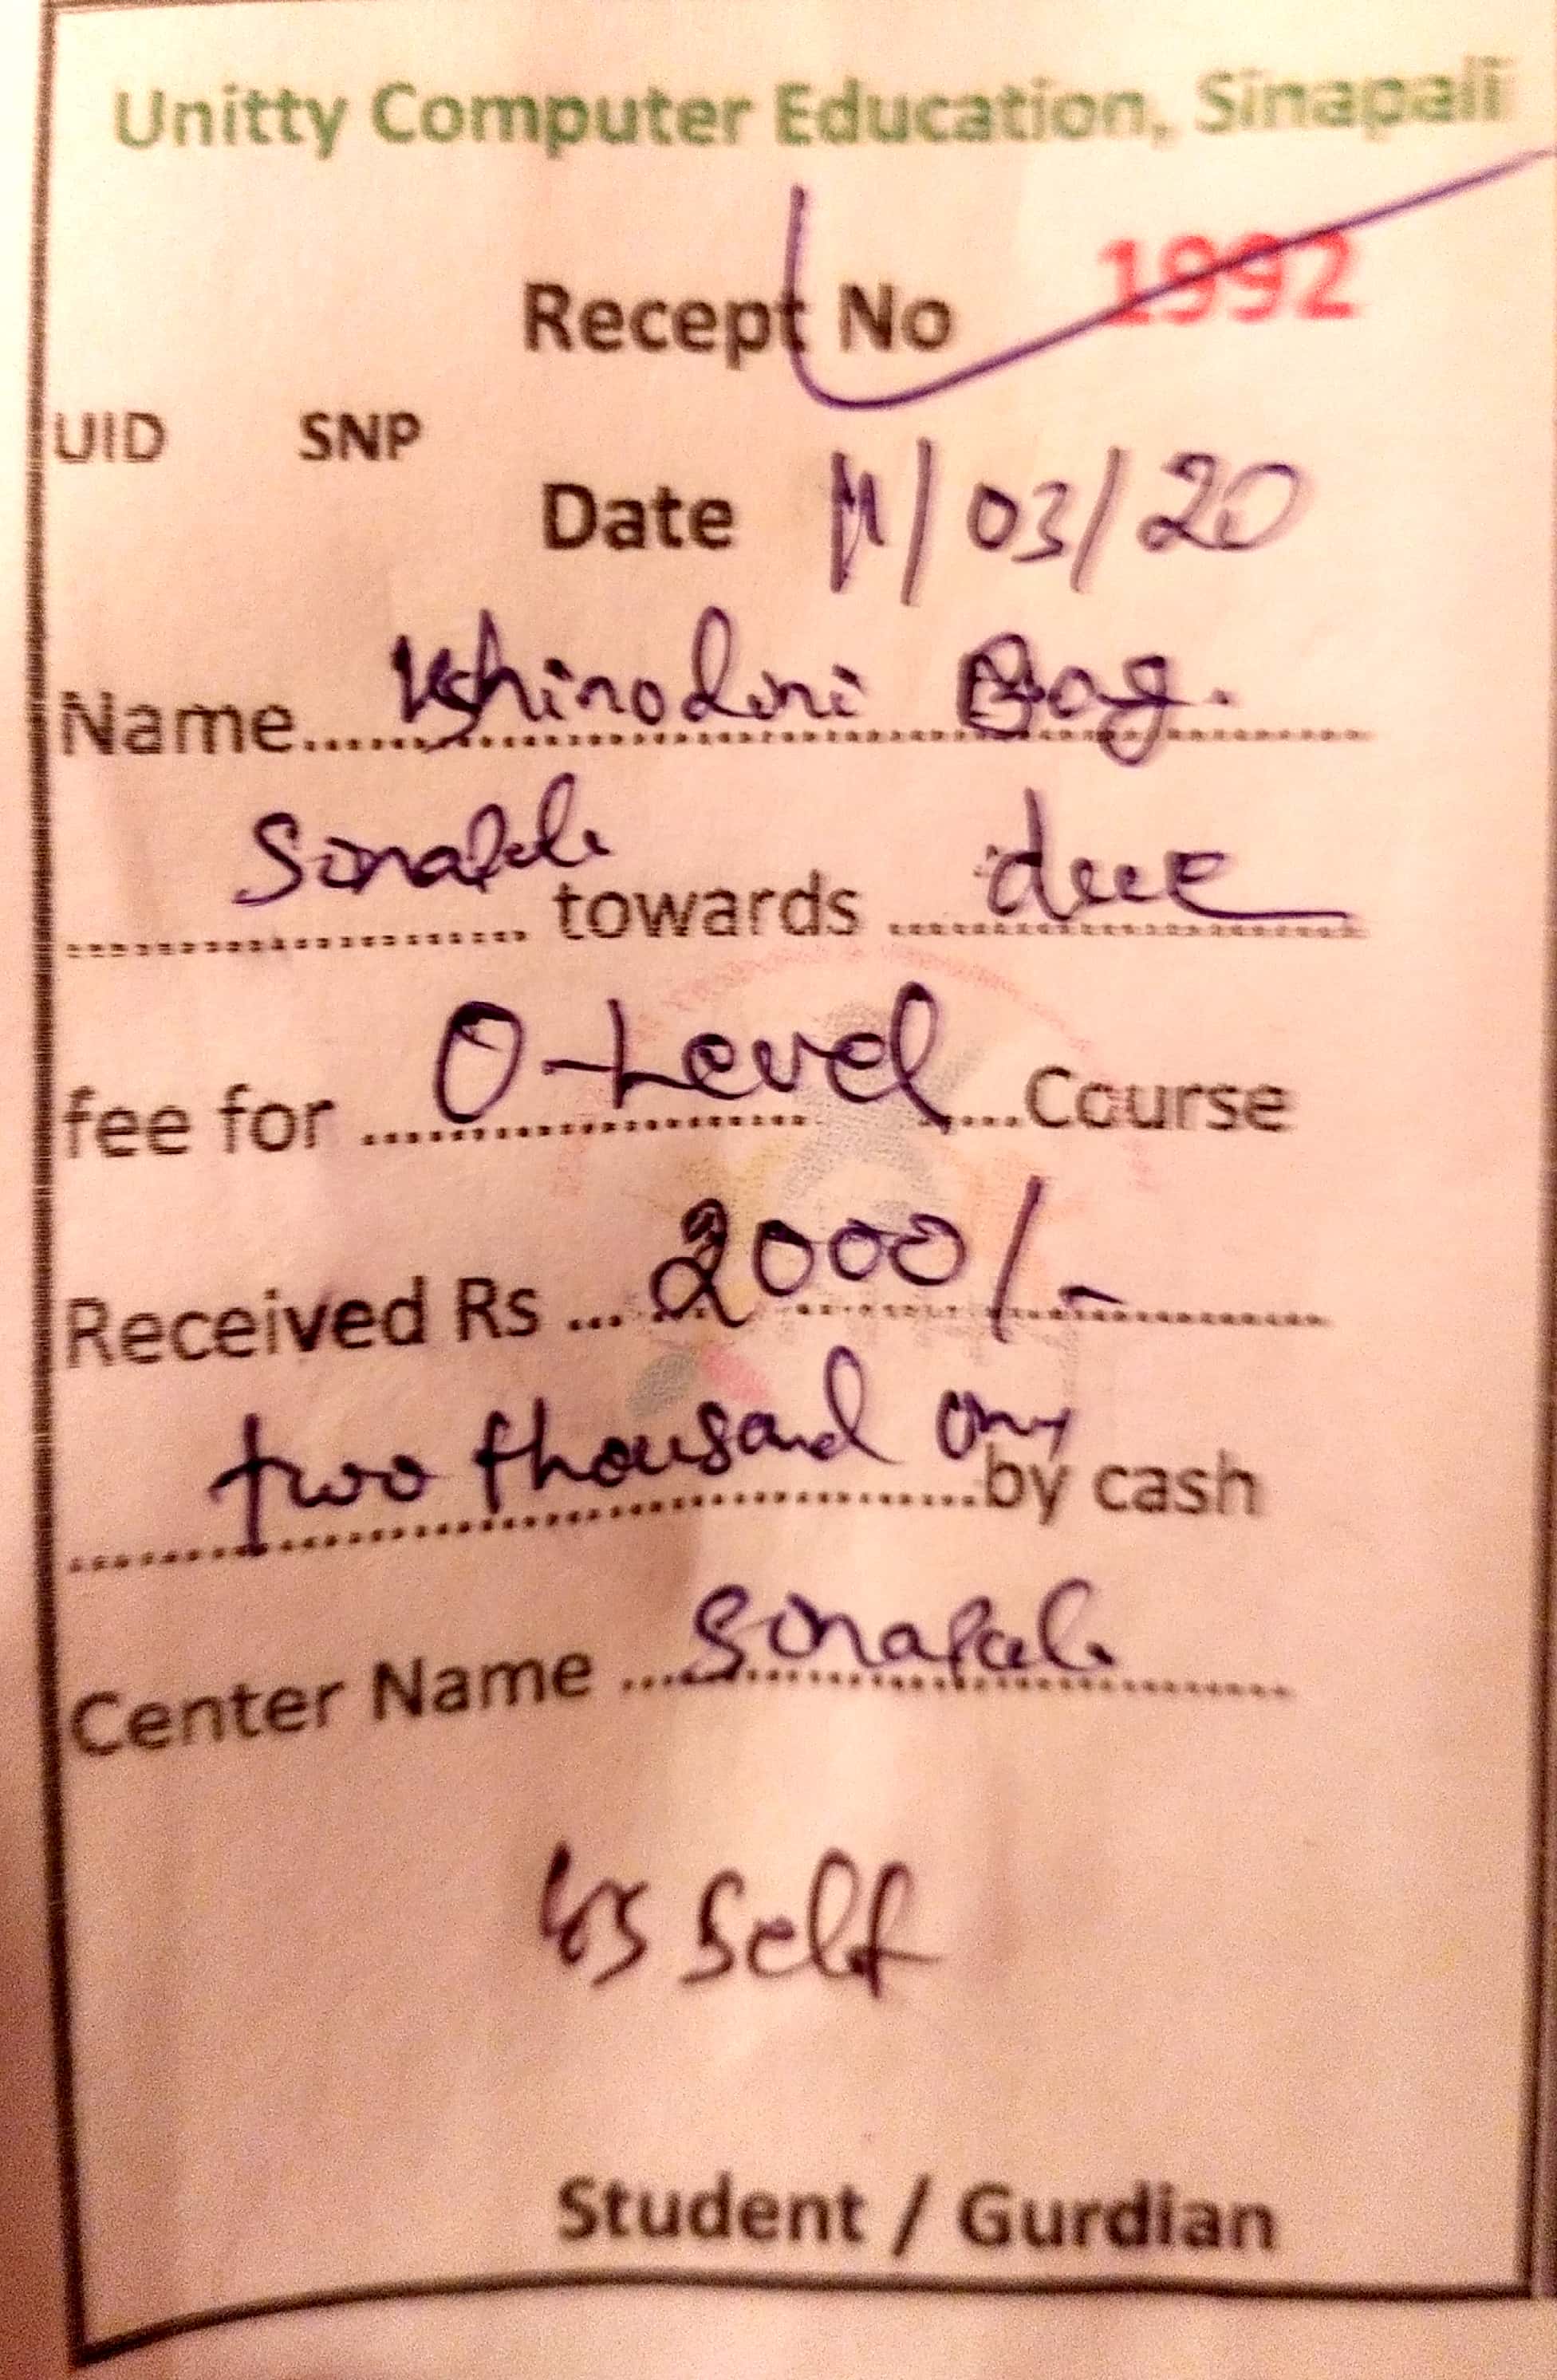 Unitty Computer Education, Sinapali
Recept No 1992
UID SNP
Date 11/03/20
Name.......Kshirodini Bag.
Sinapali towards due
fee for O-Level Course
Received Rs ... 2000/-
two thousand only by cash
Center Name ... Sinapali
Self
Student / Gurdian